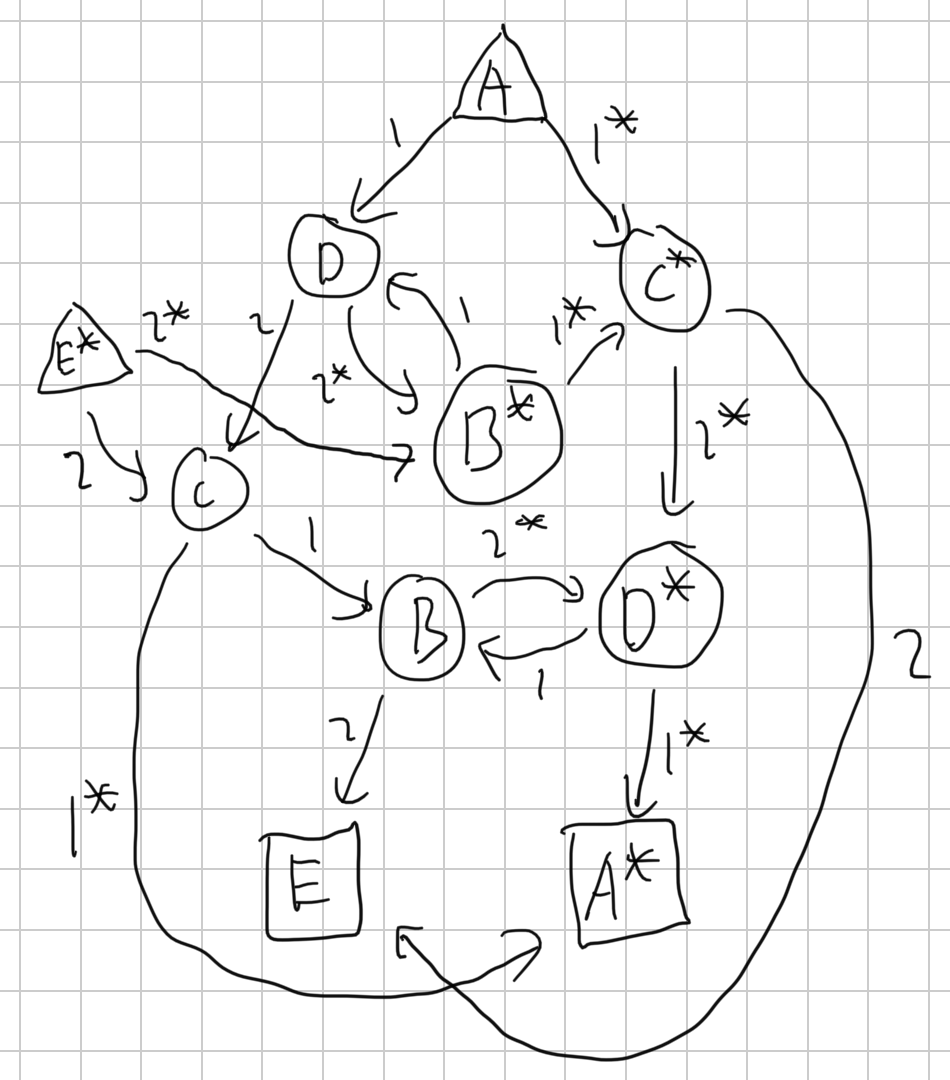 A
1
1*
D
C*
E*
2*
2
2*
1
1*
B*
2*
2
C
1
2*
B
D*
1
2
2
1*
1*
E
A*